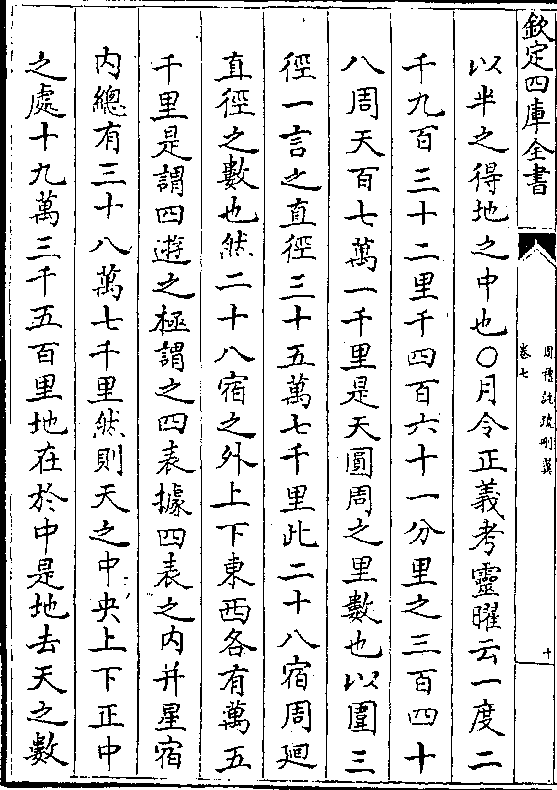 欽定四庫全書
周禮註疏刪翼
卷七
十
以半之得地之中也○月令正義考靈曜云一度二
千九百三十二里千四百六十一分里之三百四十
八周天百七萬一千里是天圓周之里數也以圍三
徑一言之直徑三十五萬七千里此二十八宿周迴
直徑之數也然二十八宿之外上下東西各有萬五
千里是謂四遊之極謂之四表據四表之内并星宿
内總有三十八萬七千里然則天之中央上下正中
之處十九萬三千五百里地在於中是地去天之數